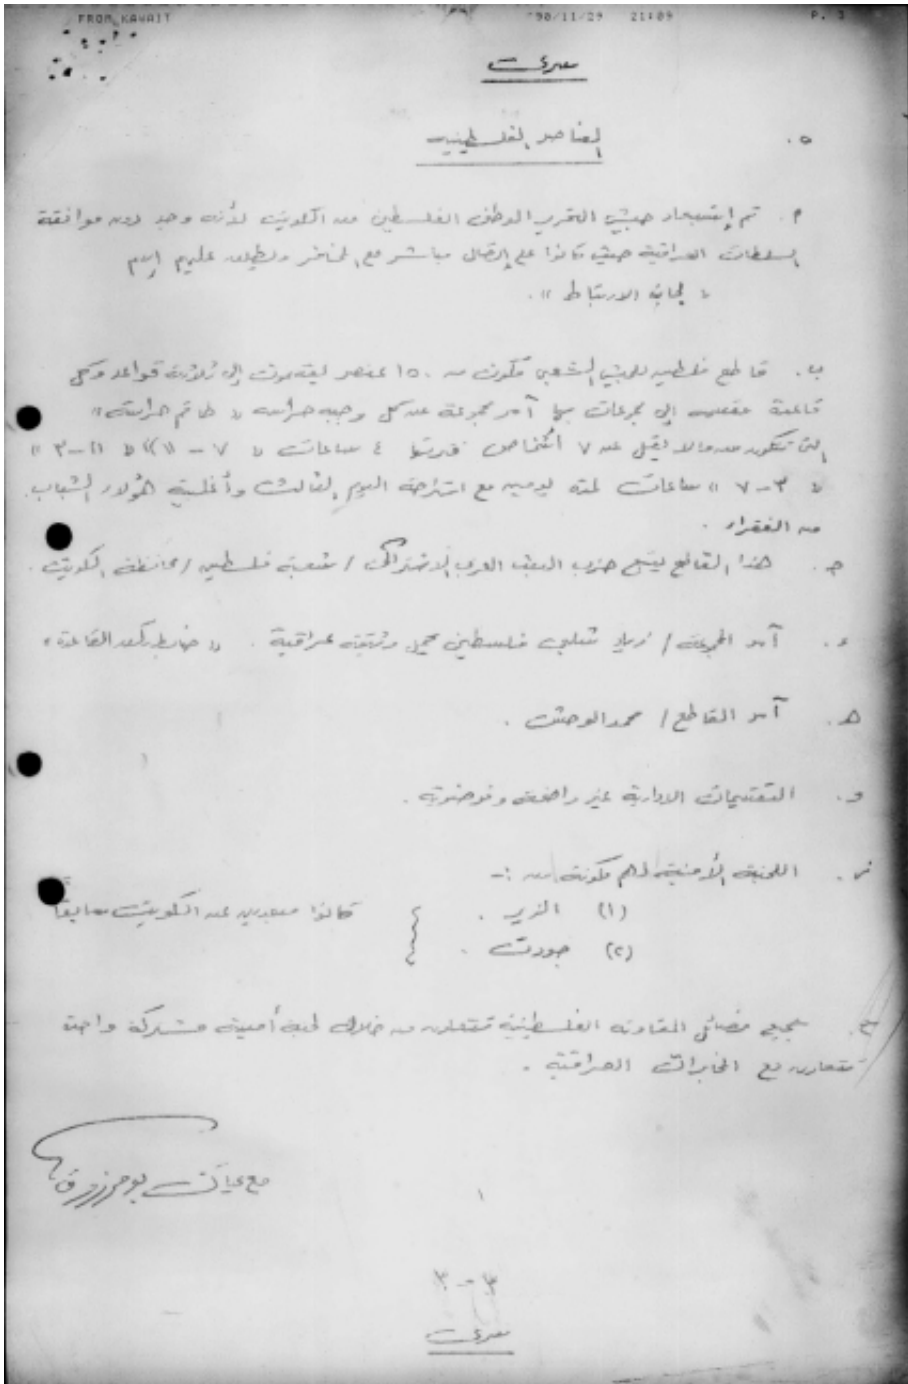 FROM KAWAIT '90/11/29 21:09 P. 3
سري
٥. العناصر الفلسطينية
أ. تم إستبعاد جيش التحرير الوطني الفلسطيني من الكويت لأنه وجد دون موافقة
السلطات العراقية حيث كانوا على إتصال مباشر مع المخافر ويطلق عليهم إسم
" لجان الارتباط ".
ب. قاطع فلسطين للجيش الشعبي مكون من ١٥٠ عنصر يقسمون إلى ثلاثة قواعد وكل
قاعدة مقسمه إلى مجموعات بها آمر مجموعة عن كل وجبه حراسه " طاقم حراسة "
التي تتكون من مالا يقل عن ٧ أشخاص فترتها ٤ ساعات " ٧ - ١١ " " ١١ - ٣ "
" ٣ - ٧ " ساعات لمدة يومين مع استراحة اليوم الثالث وأغلبية هؤلاء الشباب
من الفقراء .
ج. هذا القاطع يتبع حزب البعث العربي الاشتراكي / شعبة فلسطين / محافظة الكويت .
د. آمر المجموعة / زياد شلبي فلسطيني يحمل وثيقة عراقية . " ضابط ركن القاعدة "
هـ. آمر القاطع / محمد الوحش .
و. التقسيمات الادارية غير واضحة وفوضوية .
ز. اللجنة الأمنية لهم مكونة من :-
(١) الزير .
(٢) جودت .
كانوا مبعدين عن الكويت سابقاً
جميع فصائل المقاومة الفلسطينية تتعاون من خلال لجنة أمنية مشتركة واحدة
تتعاون مع المخابرات العراقية .
مع تحيات بو مرزوق
١
٣ - ٣
سري